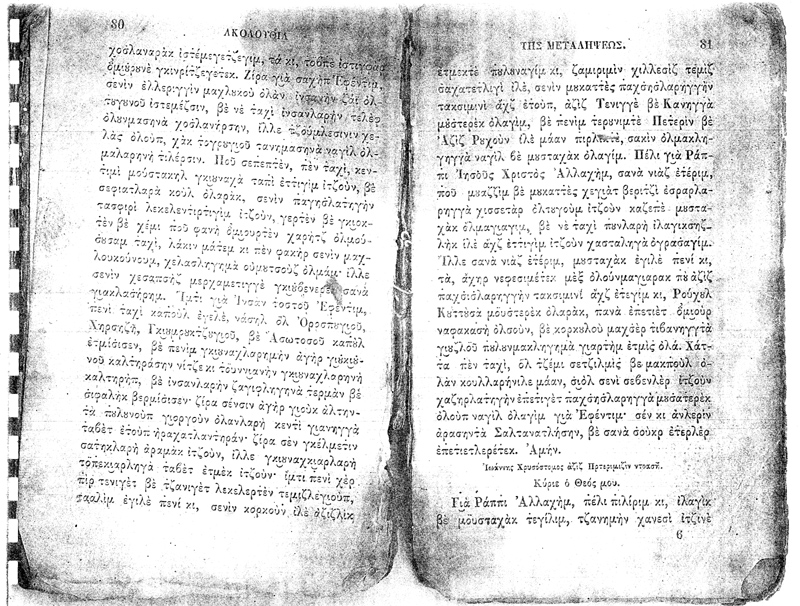 80
ΑΚΟΛΟΥΘΙΑ
χοσλαναρὰκ ἰστέμεγετζεγιμ, τά κι, τοὔπε
ὀμιουρουνὲ γκινρίτζεγετεκ. Ζίρα γιὰ σαχὴπ Ἐφέντιμ,
σενὶν ἐλλεριγγὶν μαχλουκοῦ ὀλὰν ἰνσανὴν ζάϊ ὀλ-
τουγουνοῦ ἰστεμέζσιν, βὲ νὲ ταχὶ ἰνσανλαρὴν τελὲφ
ὀλουνμασηνὰ χοσλανήρσην, ἴλλε τζουμλεσινὶν χε-
λὰς ὀλοὺπ, χὰκ τογρυγιοῦ τανημασηνὰ ναγὶλ ὀλ-
μαλαρηνὴ τιλέρσιν. Ποῦ σεπεπτὲν, πὲν ταχὶ, κεν-
τιμὶ μούστακηλ γκιουναχὰ ταπὶ ἐττιγὶμ ἰτζοὺν, βὲ
σεφιατλαρὰ κοὺλ ὀλαρὰκ, σενὶν παγησλατηγὴν
τασφιρὶ λεκελεντιρτιγὶμ ἰτζοὺν, γερτὲν βὲ γκιοκ-
τὲν βὲ χέμι ποῦ φανὴ ὀμιουρτὲν χαρὴτζ ὀλμού-
σουσαμ ταχὶ, λάκιν μάτεμ κι πὲν φακὴρ σενὶν μαχ-
λουκουνούμ, χελασληγημὰ οὐμουτσοὺζ ὀλμάμ· ἴλλε
σενὶν χεσαπσὴζ μερχαμετιγγὲ σανὰ
γιακλατήρημ. Ἴμτι γιὰ Ἰνσὰν τοστοῦ Ἐφέντιμ,
πενὶ ταχὶ καποὺλ ἐγιλὲ, νάσηλ ὀλ Ὀρροσπουγιοῦ,
Χηρσηζὴ, Γκιουμουκτζουγιοῦ, βὲ Ἀσωτοσοῦ καποὺλ
ἐτμίσισεν, βὲ πενὶμ γκιουναχλαρημὴν ἀγὴρ γιουκιου-
νοῦ καλτηράσην νίτζε κι τουννιανὴν γκιουναχλαρηνὴ
καλτηρὴπ, βὲ ἰνσανλαρὴν ζαγιφληγηνὰ τερμὰν βὲ
σιφαλὴκ βερμίσισεν· ζίρα σένσιν ἀγὴρ γιοὺκ ἀλτην-
τὰ πουλουνοὺπ γιοργοὺν ὀλανλαρὴ κεντὶ γιανηγγὰ
ταβὲτ ἐτοὺπ ἡραχατλαντηράν· ζίρα σὲν γκέλμετιν
σατηκλαρὴ ἀραμὰκ ἰτζοὺν, ἴλλε γκιουναχκιαρλαρὴ
τόπεκιαρληγὰ ταβὲτ ἐτμὲκ ἰτζούν· ἴμτι πενὶ χὲρ
πὶρ τενιγὲτ βὲ τζανιγὲτ λεκελερτὲν τεμιζλεγιοὺπ,
φααλὶμ ἐγιλὲ πενὶ κι, σενὶν κορκοὺν ἰλὲ ἀζιζλὶκ
ΤΗΣ ΜΕΤΑΛΗΨΕΩΣ.
81
ἐτμεκτὲ πουλουναγὶμ κι, ζαμιριμὶν χιλλεσὶζ τεμὶζ
σαχατετλιγὶ ἰλὲ, σενὶν μυκαττὲς παχσησλαρηγγὴν
τακσιμινὶ ἀχζ ἐτοὺπ, ἀζὶζ Τενιγγὲ βὲ Κανηγγὰ
μυστερὲκ ὀλαγὶμ, βὲ πενὶμ τερυνιμτὲ Πετερὶν βὲ
Ἀζὶζ Ρυχοὺν ἰλὲ μάαν πιρλικτὲ, σακὶν ὀλμακλη-
ληγηγγὰ ναγὶλ βὲ μυσταχὰκ ὀλαγίμ. Πέλι γιὰ Ράπ-
πι Ἰησοῦς Χριστὸς Ἀλλαχὴμ, σανὰ νιὰζ ἐτέριμ,
ποῦ μυαζζὶμ βὲ μυκαττὲς χεγιὰτ βεριτζὶ ἐσραρλα-
ρηγγὰ χισσετὰρ ὀλτυγοὺμ ἰτζοὺν καζεπὲ μυστα-
χὰκ ὀλμαγιαγίμ, βὲ νὲ ταχὶ πυνλαρὴ ἰλαγικσηζ-
λὴκ ἰλὲ ἀχζ ἐττιγὶμ ἰτζοὺν χασταληγὰ ὀγρασαγίμ.
Ἴλλε σανὰ νιὰζ ἐτέριμ, μυσταχὰκ ἐγιλὲ πενὶ κι,
τὰ, ἀχὴρ νεφεσιμέτεκ μὲξ ὀλούνμαγιαρακ πυ ἀζὶζ
παχσησλαρηγγὴν τακσιμινὶ ἀχζ ἐτεγὶμ κι, Ροὺχυλ
Κυττυσὰ μουστερὲκ ὀλαρὰκ, πανὰ ἐπετιὲτ ὀμιοὺρ
ναφακασὴ ὀλσοὺν, βὲ κορκυλοὺ μαχσὲρ τιβανηγγτὰ
γιυζλοῦ πυλουνμακληγημὰ γιαρτὴμ ἐτμὶς ὀλά. Χάτ-
τα πὲν ταχὶ, ὂλ τζέμι σετζιλμὶς βε μακποὺλ ὀ-
λὰν κουλλαρήνιλε μάαν, σιὸλ σενὶ σεβενλὲρ ἰτζοὺν
χαζηρλατηγὴν ἐπετιγὲτ παχσησλαρηγγὰ μυσατερὲκ
ὀλοὺπ ναγὶλ ὀλαγὶμ γιὰ Ἐφέντιμ· σέν κι ἀνλερὶν
ἀρασηντὰ Σαλτανατλήσην, βὲ σανὰ σοὺκρ ἐτερλὲρ
ἐπετιετλερέτεκ. Ἀμήν.
Ἰωάννης Χρυσίστομος ἀζὶζ Πητεριμιζὶν ντοασή.
Κύριε ὁ Θεός μου.
Γιὰ Ράππι Ἀλλαχὴμ, πέλι πιλίριμ κι, ἰλαγὶκ
βὲ μούσταχὰκ τεγίλιμ, τζανημὴν χανεσὶ ἰτζινὲ
6